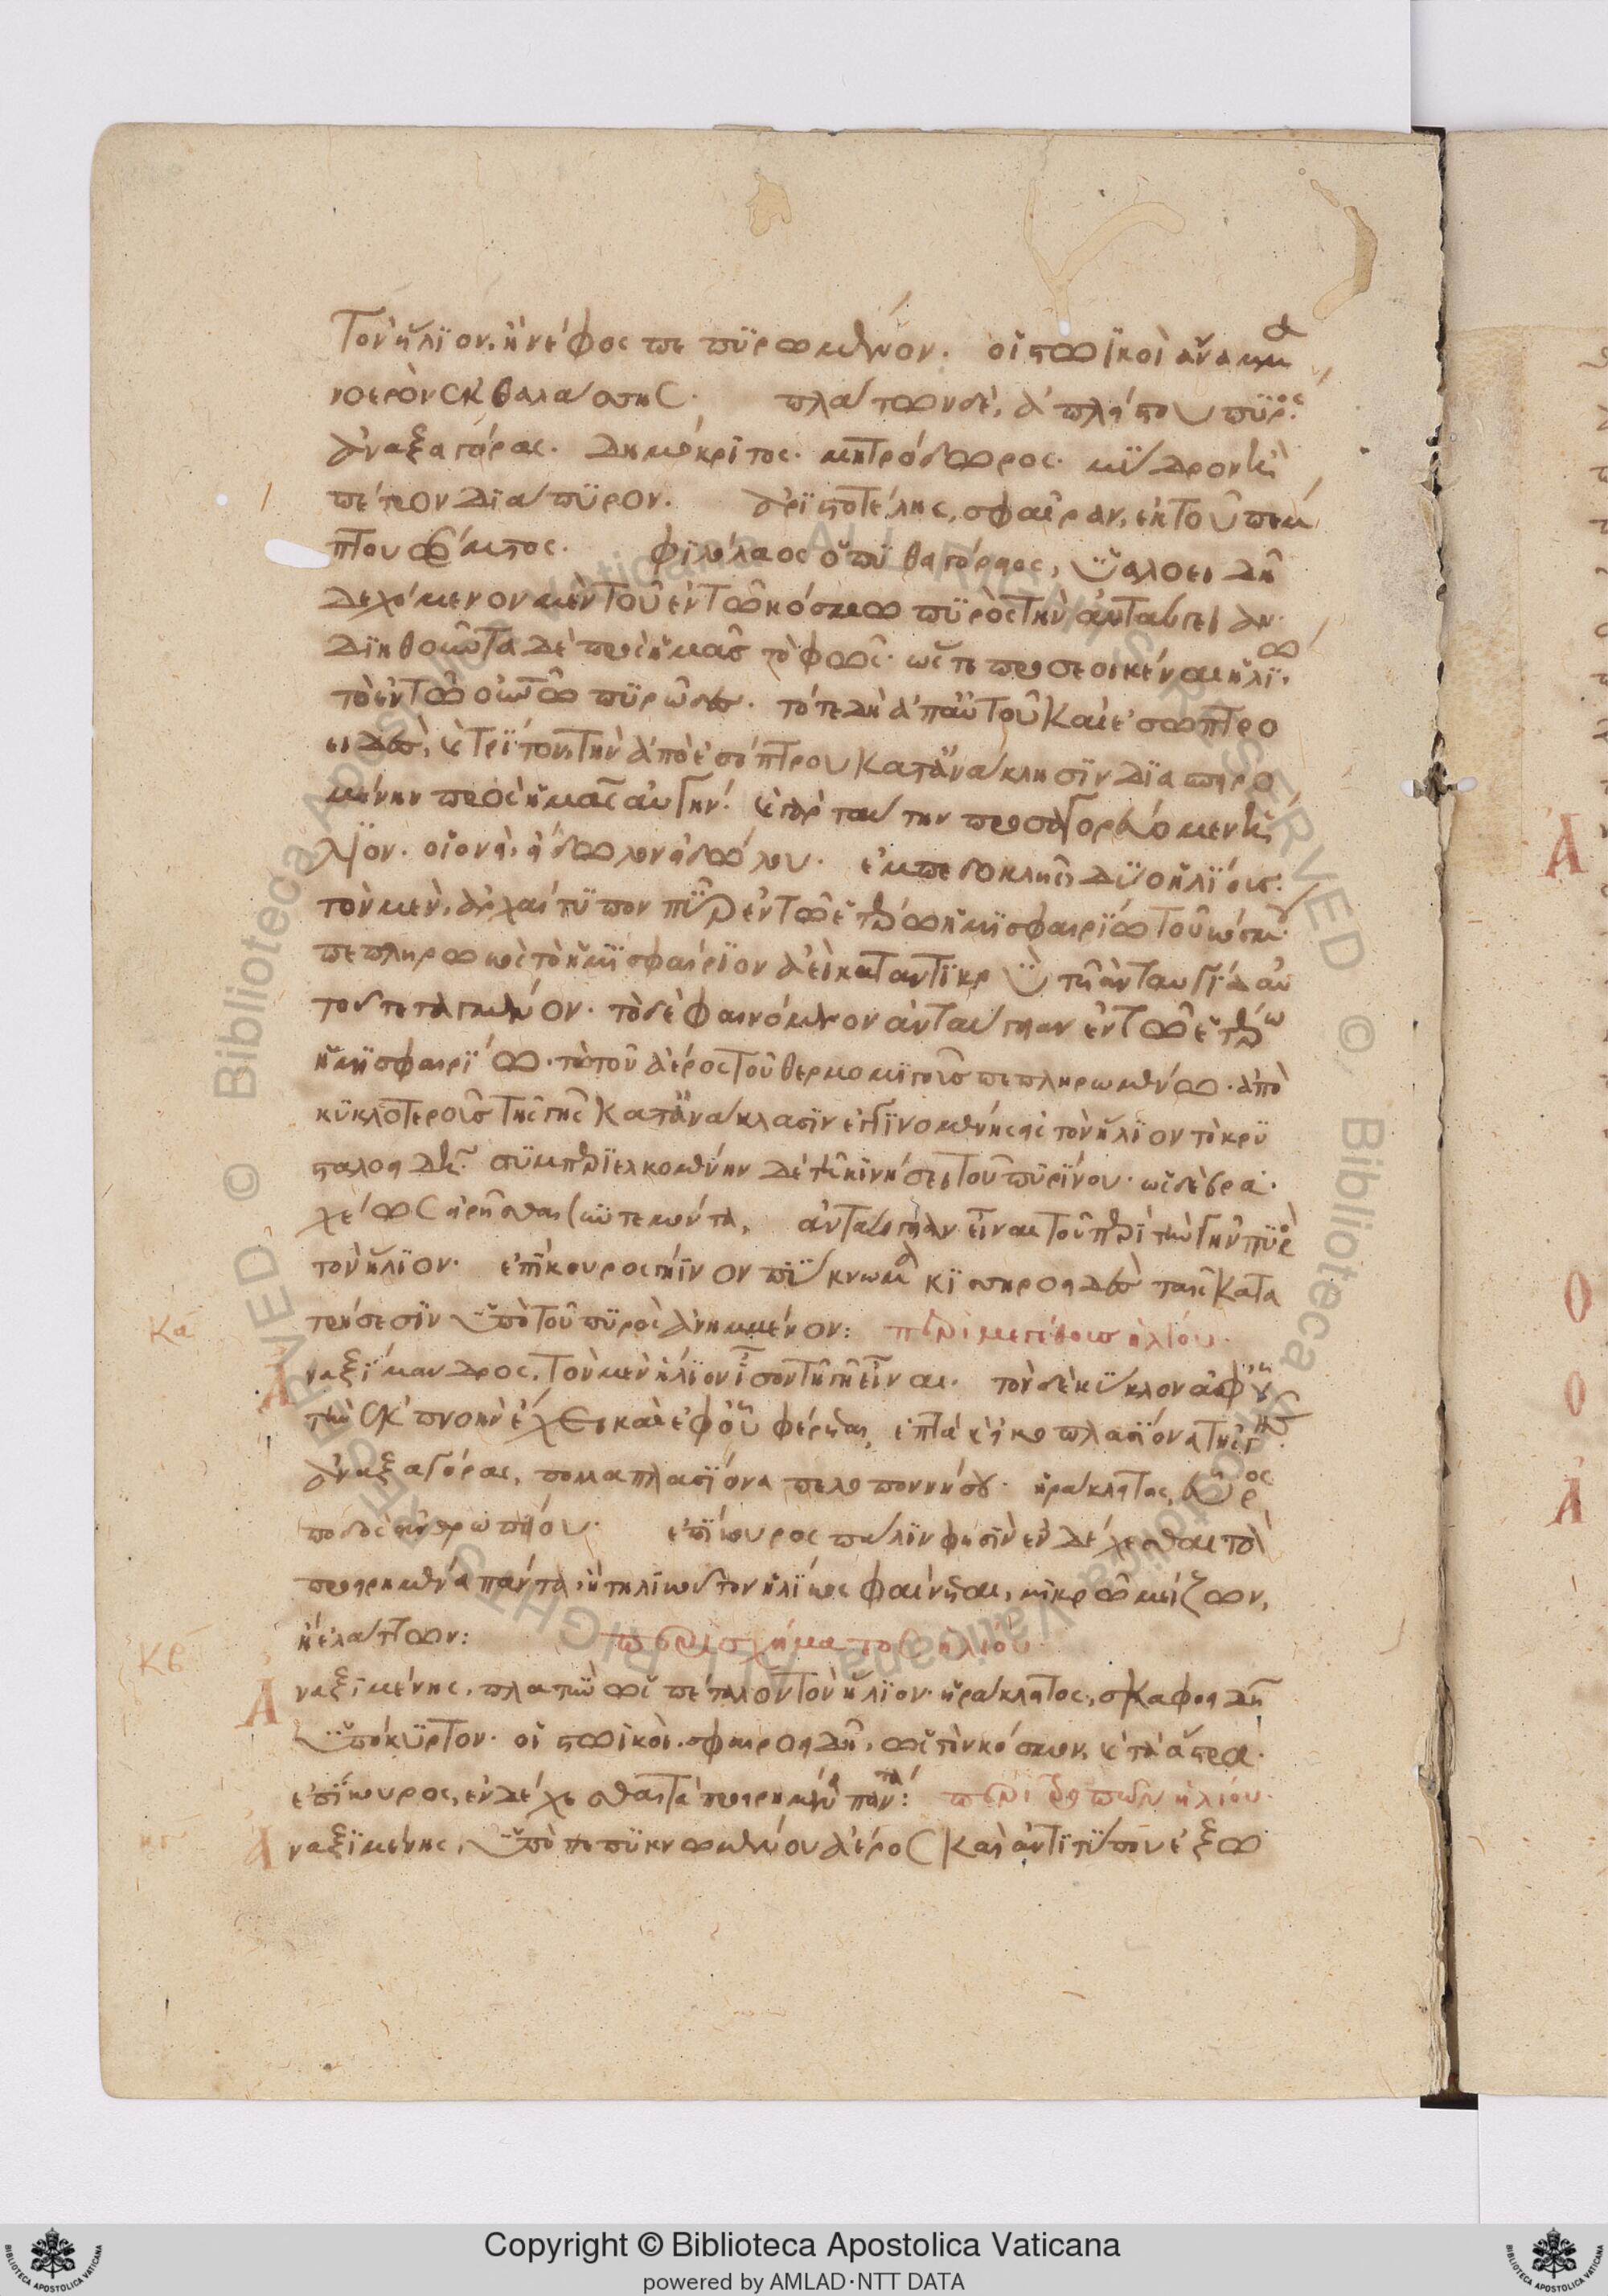 Τὸν ἥλϊον. ἢ νέφος πεπϋρωμένον. οἱ στωϊκοὶ ἄναμμα
νοερὸν ἐκ θαλάσσης. πλάτων δὲ, ἀπλείστου πϋρός.
ἀναξαγόρας. Δημόκριτος. μητρόδωρος. μΰδρον ἢ
πέτρον διάπϋρον. ἀρϊστοτέλης, σφαῖραν, ἐκ τοῦ πέμ
πτου σώματος. φϊλόλαος ὁ πϋθαγόρειος, ϋαλοειδῆ
δεχόμενον μὲν τοῦ ἐν τῶ κόσμω πϋρὸς τὴν ἀνταύγειαν.
διηθοῦντα δὲ πρὸς ἡμᾶς τὸ φῶς. ὥστε προσεοικέναι ἡλίω,
τὸ ἐν τῶ οὐνῶ πϋρῶδες. τό τε δὴ ἀπ' αὐτοῦ καὶ ἐσωπτρο
ειδὲς, καὶ τρίτον, τὴν ἀπὸ ἐσόπτρου κατ' ἀνάκλησϊν διασπειρο
μένην πρὸς ἡμᾶς αὐγήν. καὶ γὰρ ταύτην προσαγορεύομεν ἥ
λϊον. οἱονεὶ, εἴδωλον εἰδώλου. ἐμπεδοκλῆς δύο ἡλίους.
τὸν μὲν, ἀρχαίτϋπον πῦρ ἐν τῶ ἑτέρω ἡμϊσφαιρίω τοῦ κόσμου.
πεπληρωκὸς τὸ ἡμϊσφαίριον ἀεὶ καταντϊκρὺ τῆ ἀνταυγίᾳ αὐ
τοῦ τεταγμένον. τὸ δὲ φαινόμενον ἀνταύγειαν ἐν τῶ ἑτέρω
ἡμϊσφαιρίω. τῶ τοῦ ἀέρος τοῦ θερμομϊγοῦς πεπληρωμένω. ἀπὸ
κϋκλοτεροῦς τῆς γῆς κατ' ἀνάκλασϊν ἐγγϊνομένης εἰς τὸν ἥλϊον τὸν κρϋ
σταλοειδῆ. συμπερϊελκομένην δὲ τῆ κινήσει τοῦ πϋρίνου. ὡς δὲ βρα
χέως εἰρῆσθαι συντεμόντα, ἀνταύγειαν εἶναι τοῦ περὶ τὴν γῆν πϋρὸς
τὸν ἥλϊον. ἐπίκουρος γήϊνον πύκνωμα κϊσηροειδὲς ταῖς κατα
τρήσεσϊν ὑπὸ τοῦ πϋρὸς ἀνημμένον: περὶ μεγέθους ἡλίου.
κα
Ἀναξϊμανδρος, τὸν μὲν ἥλϊον ἴσον τῆ γῆ εἶναι. τὸν δὲ κύκλον ἀφ' οὗ
τὴν ἐκπνοὴν ἔχει καὶ ἐφ' οὗ φέρεται, ἑπτὰ καὶ εἰκοσαπλασϊονα τῆς γῆς.
ἀναξαγόρας, πολλαπλασϊονα πελοποννήσου. ἡράκλειτος, εὖρος
ποδὸς ἀνθρωπείου. ἐπίκουρος πάλϊν φησὶν ἐνδέχεσθαι τὰ
προειρημένα πάντα, ἢ τηλικοῦτον ἡλίκος φαίνεται, μικρῶ μείζων,
ἢ ἐλάττων: περὶ σχήματος ἡλίου
κβ
Ἀναξϊμένης, πλατὺν ὡς πέταλον τὸν ἥλϊον. ἡράκλειτος, σκαφοειδῆ
ὑπόκϋρτον. οἱ στωϊκοὶ. σφαιροειδῆ, ὡς τὸν κόσμον, καὶ τὰ ἄστρα.
ἐπίκουρος, ἐνδέχεσθαι τὰ προειρημένα πάντα: περὶ τροπῶν ἡλίου.
κγ
Ἀναξϊμένης, ὑπὸ πεπϋκνωμένου ἀέρος καὶ ἀντϊτύπου ἐξω
Copyright © Biblioteca Apostolica Vaticana
powered by AMLAD·NTT DATA